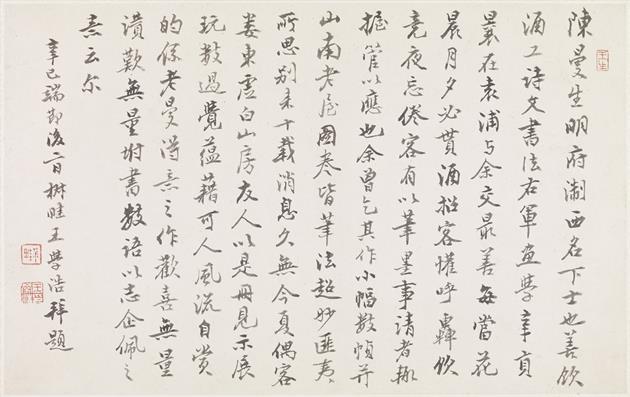 陳曼生明府淛西名下士也善飲
酒工詩文書法右軍畫學
曩在袁浦与余交最善每當花
晨月夕必貰酒招客懽呼轟飲
竟夜忘倦客有以筆墨事請者輒
握管以應也余曾乞其作小幅數幀并
山南老屋圖卷皆筆法超妙匪夷
所思别來十載消息久無今夏偶客
婁東虛白山房友人以是冊見示展
玩數過覺蘊藉可人風流自賞
的係老曼得意之作歡喜無量
讚歎無量坿書數語以志企佩之
意云尔
辛巳端節後日椒畦王學浩拜題